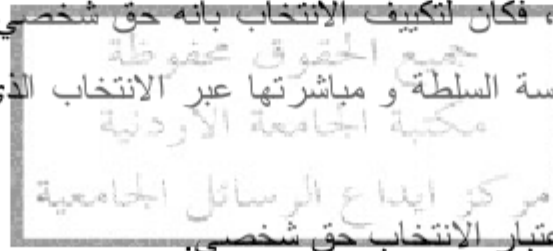 فكان لتكييف الانتخاب بأنه حق شخصي
جميع الحقوق محفوظة
السلطة و مباشرتها عبر الانتخاب
مكتبة الجامعة الاردنية
مركز ايداع الرسائل الجامعية
الانتخاب حق شخصي.